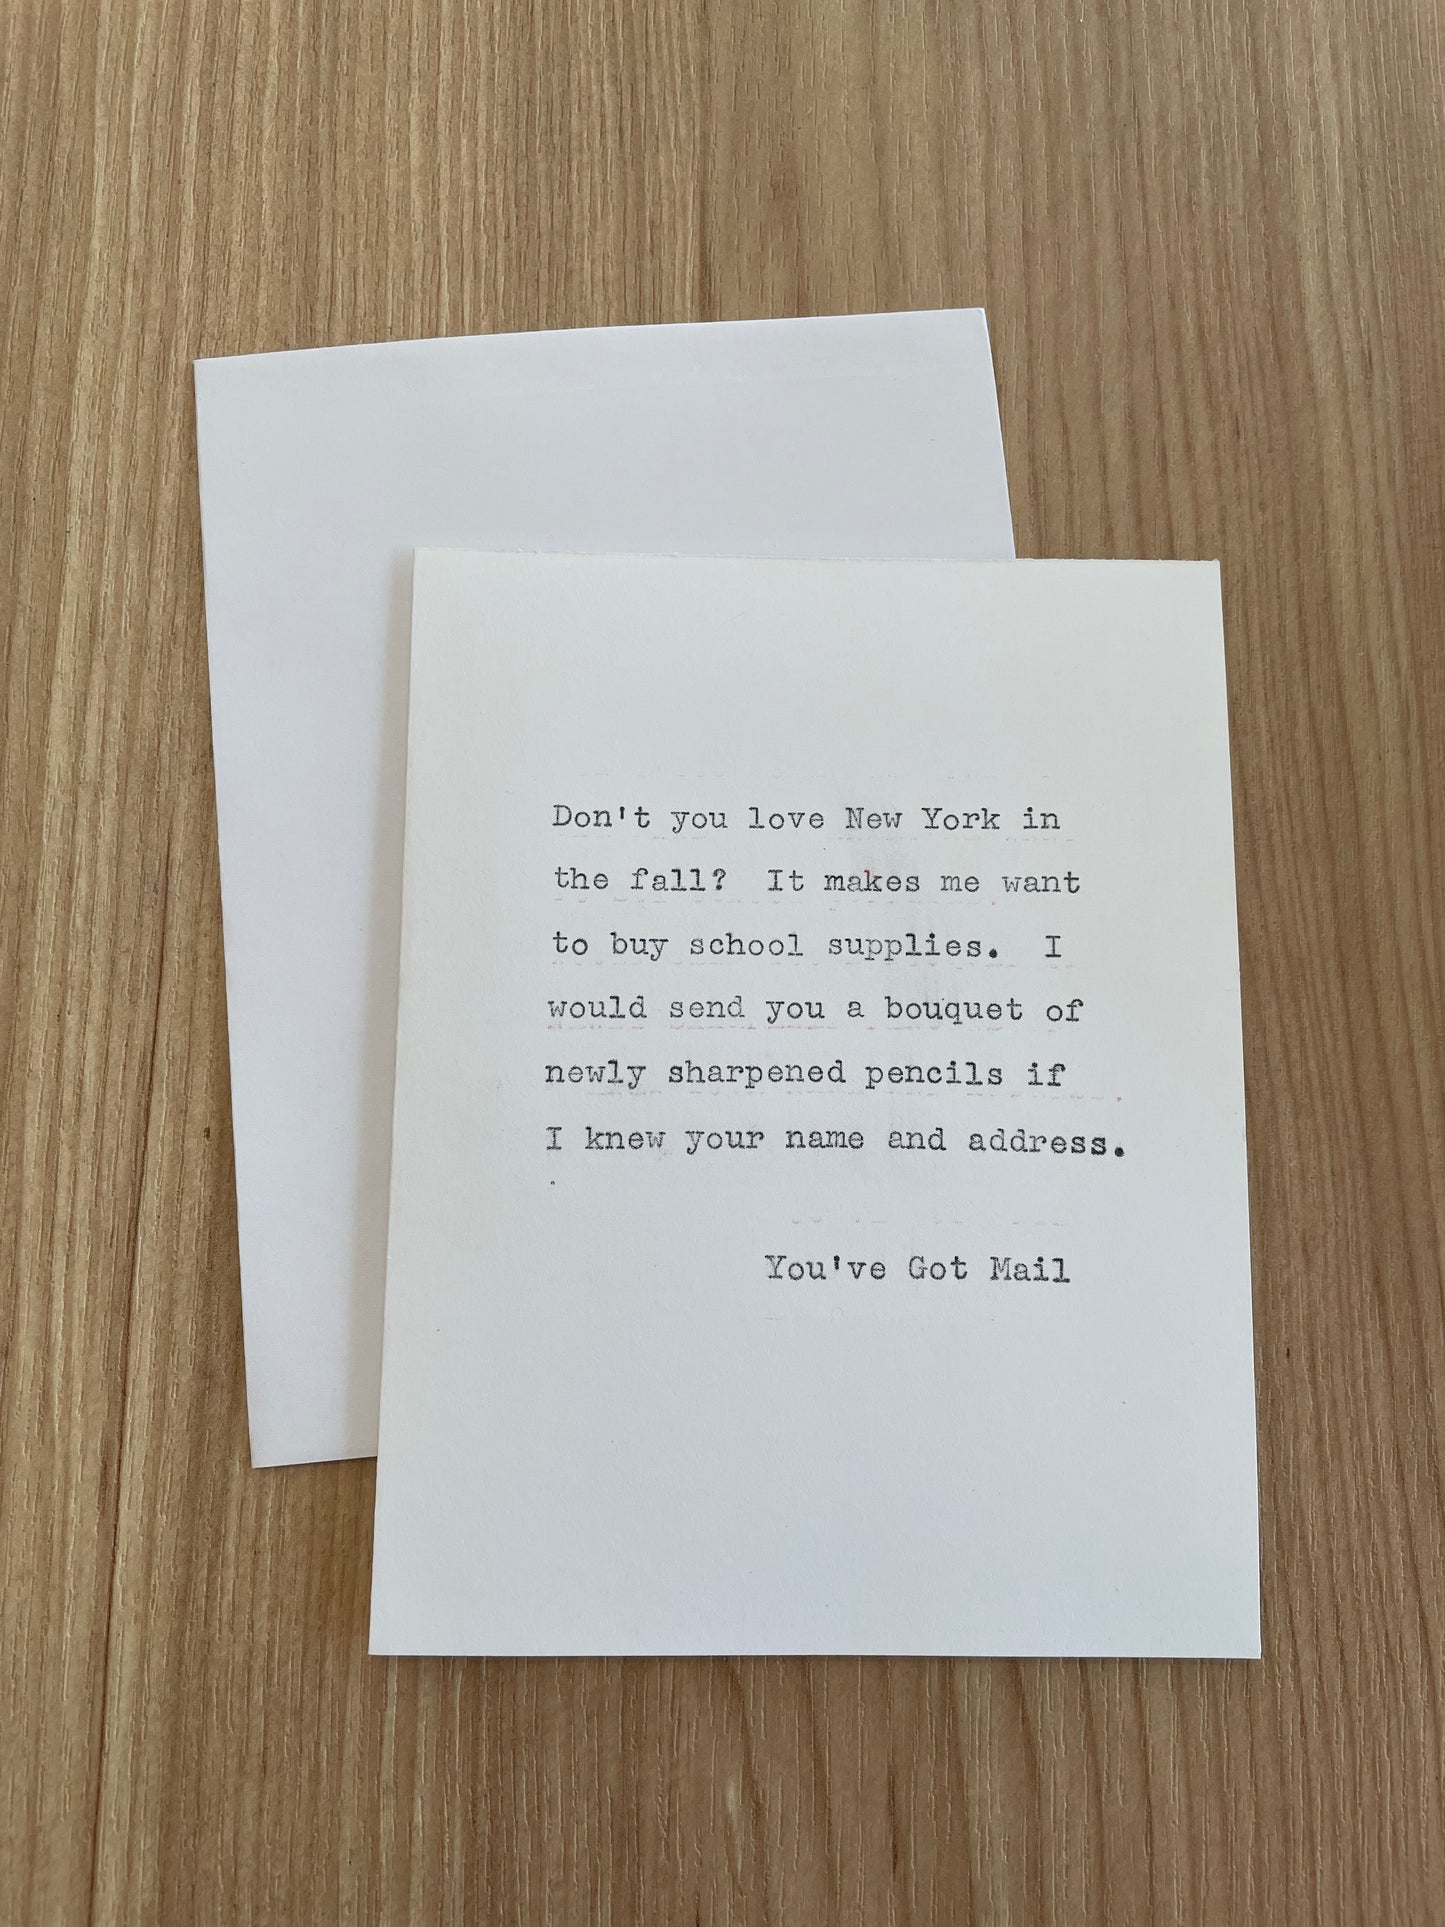 Don't you love New York in
the fall?  It makes me want
to buy school supplies.  I
would send you a bouquet of
newly sharpened pencils if
I knew your name and address.
You've Got Mail